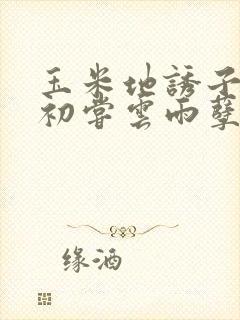 玉米地誘子
初嘗雲雨孽
缘酒